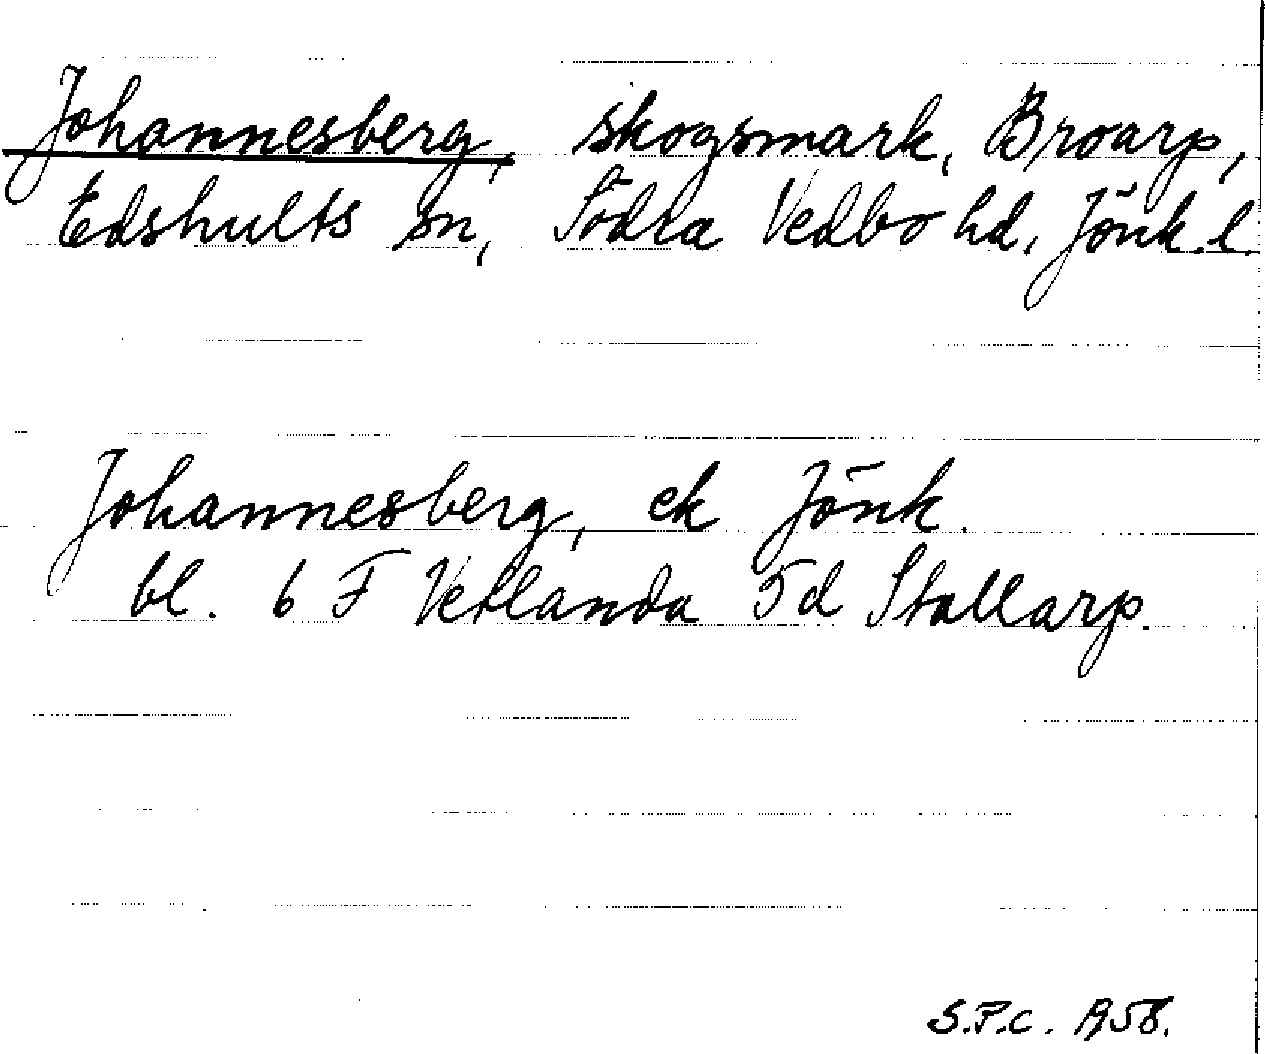 Johannesberg, skogsmark, Broarp,
Edshults sn, Södra Vedbo hd, Jönk. l.
Johannesberg, ek Jönk.
bl. 6 F Vetlanda 5d Stallarp.
S.P.C. 1958.